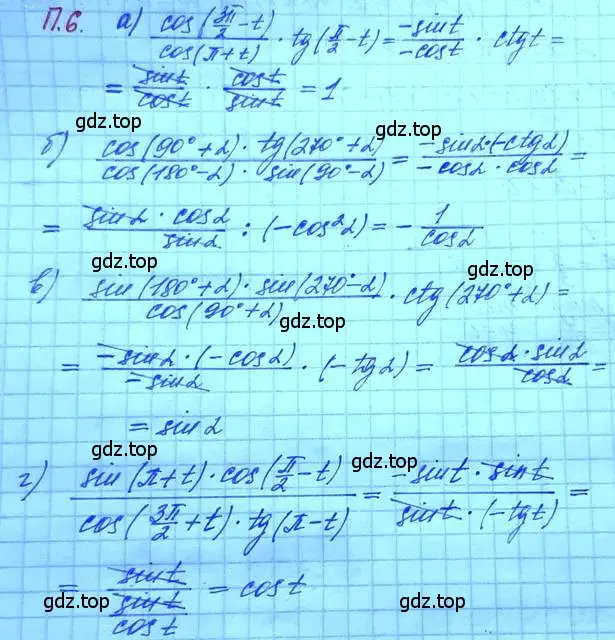 П.6. а) cos(3π/2 - t)/cos(π+t) · tg(π/2 - t) = -sint/-cost · ctgt =
= sint/cost · cost/sint = 1
gdz.top
gdz.top
б) cos(90°+α) · tg(270°+α)/cos(180°-α) · sin(90°-α) = -sinα·(-ctgα)/-cosα · cosα =
= sinα · cosα/sinα : (-cos²α) = - 1/cosα
gdz.top
gdz.top
в) sin(180°+α) · sin(270°-α)/cos(90°+α) · ctg(270°+α) =
gdz.top
= -sinα · (-cosα)/-sinα · (-tgα) = cosα · sinα/cosα =
= sinα
gdz.top
gdz.top
г) sin(π+t) · cos(π/2 - t)/cos(3π/2 + t) · tg(π-t) = -sint · sint/sint · (-tgt) =
= sint/sint/cost = cost
gdz.top
gdz.top